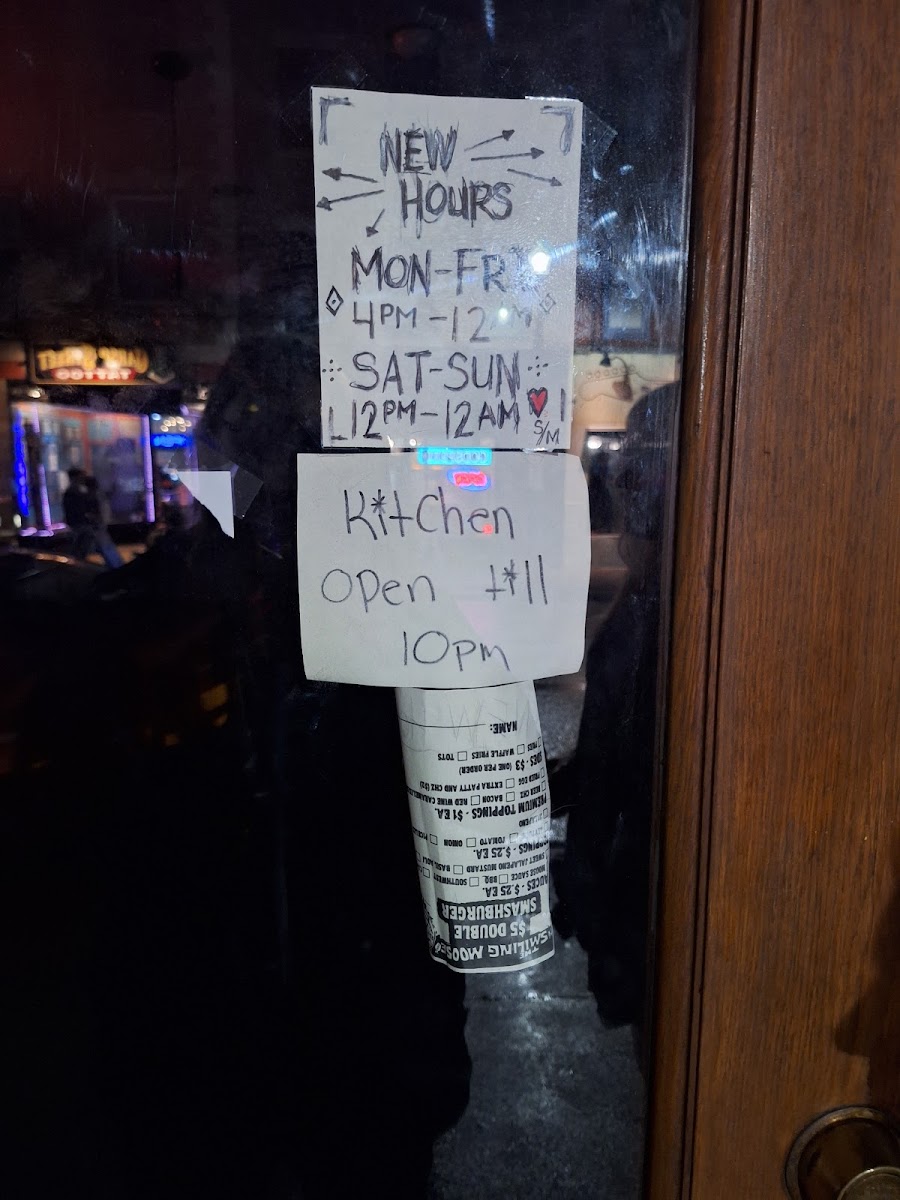 NEW
HOURS
MON-FRI
4PM-12AM
SAT-SUN
12PM-12AM
S/M
Kitchen
open till
10pm
THE
SMILING MOOSE
$5 DOUBLE
SMASHBURGER
SAUCES - $.25 EA.
MOOSE SAUCE BBQ SOUTHWEST
SWEET JALAPENO MUSTARD BASIL AIOLI
TOPPINGS - $.25 EA.
TOMATO ONION PICKLES
JALAPENO
PREMIUM TOPPINGS - $1 EA.
BEER CHZ BACON RED WINE CARAMELIZED
FRIED EGG EXTRA PATTY AND CHZ ($2)
SIDES - $3 (ONE PER ORDER)
FRIES WAFFLE FRIES TOTS
NAME:
TATTOO